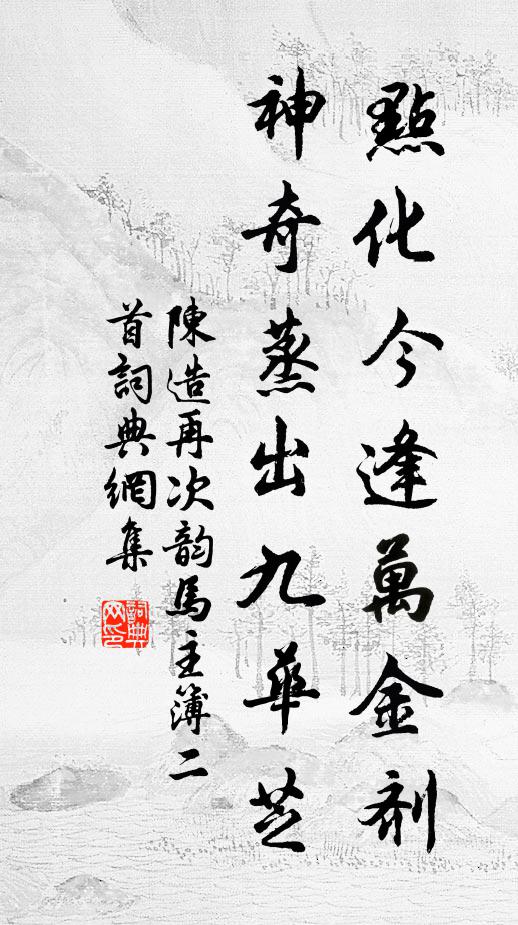 點化今逢萬金剤
神奇蒸出九華芝
陳造再次韵馬主簿二
首詞典網集
詞典网印